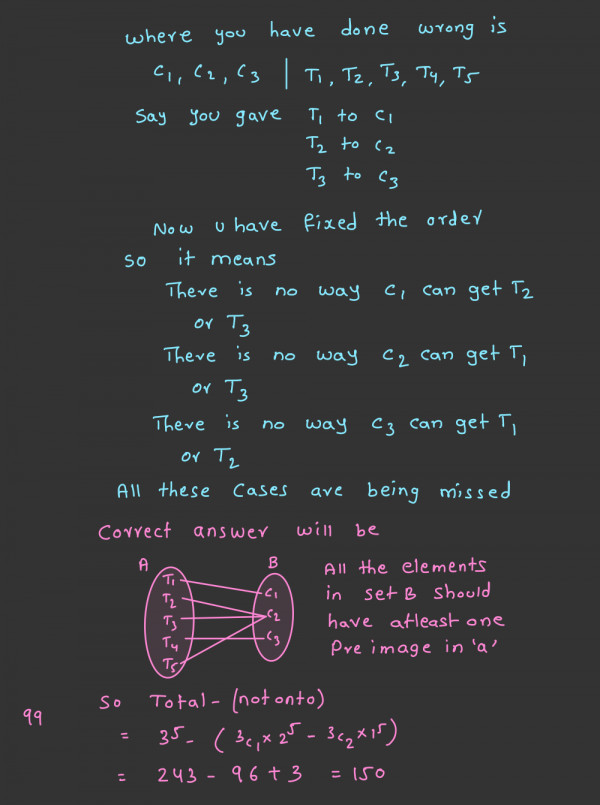 where you have done wrong is
C1, C2, C3 | T1, T2, T3, T4, T5
Say you gave T1 to C1
T2 to C2
T3 to C3
Now u have fixed the order
so it means
There is no way C1 can get T2
or T3
There is no way C2 can get T1
or T3
There is no way C3 can get T1
or T2
All these cases are being missed
Correct answer will be
A B
T1
T2
T3
T4
T5
C1
C2
C3
All the elements
in set B should
have atleast one
Pre image in 'a'
99
So Total - (not onto)
= 3⁵ - ( ³C₁ × 2⁵ - ³C₂ × 1⁵)
= 243 - 96 + 3 = 150